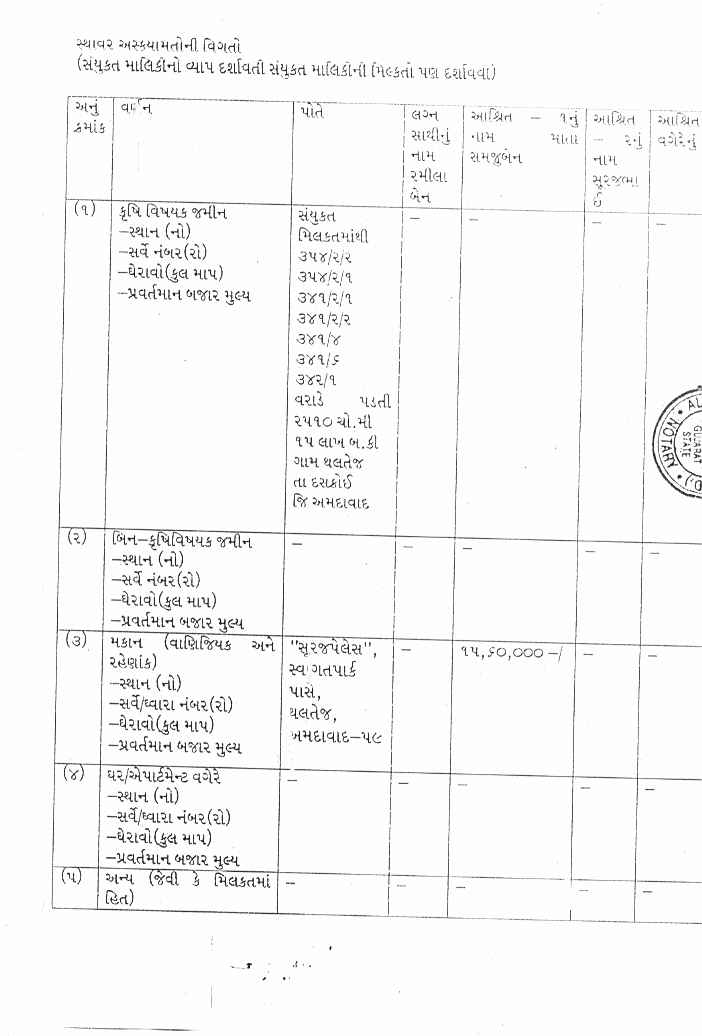 સ્થાવર અસ્કયામતોની વિગતો
(સંયુકત માલિકીનો વ્યાપ દર્શાવતી સંયુકત માલિકીની મિલ્કતો પણ દર્શાવવા)
અનું ક્રમાંક
વર્ણન
પોતે
લગ્ન સાથીનું નામ રમીલા બેન
આશ્રિત – ૧નું નામ માતા સમજુબેન
આશ્રિત – ૨નું નામ સુરજભા ઈ
આશ્રિત વગેરેનું
(૧)
કૃષિ વિષયક જમીન
–સ્થાન (નો)
–સર્વે નંબર(રો)
–ઘેરાવો(કુલ માપ)
–પ્રવર્તમાન બજાર મુલ્ય
સંયુકત
મિલકતમાંથી
૩૫૪/૨/૨
૩૫૪/૨/૧
૩૪૧/૨/૧
૩૪૧/૨/૨
૩૪૧/૪
૩૪૧/૬
૩૪૨/૧
વરાડે પડતી
૨૫૧૦ ચો.મી
૧૫ લાખ બ.કી
ગામ થલતેજ
તા દસક્રોઈ
જિ અમદાવાદ
–
–
–
–
NOTARY
GUJARAT
STATE
(૨)
બિન–કૃષિવિષયક જમીન
–સ્થાન (નો)
–સર્વે નંબર(રો)
–ઘેરાવો(કુલ માપ)
–પ્રવર્તમાન બજાર મુલ્ય
–
–
–
–
–
(૩)
મકાન (વાણિજિયક અને
રહેણાંક)
–સ્થાન (નો)
–સર્વે/ધ્વારા નંબર(રો)
–ઘેરાવો(કુલ માપ)
–પ્રવર્તમાન બજાર મુલ્ય
"સૂરજપેલેસ",
સ્વાગતપાર્ક
પાસે,
થલતેજ,
અમદાવાદ–૫૯
–
૧૫,૬૦,૦૦૦–/
–
–
(૪)
ઘર/એપાર્ટમેન્ટ વગેરે
–સ્થાન (નો)
–સર્વે/ધ્વારા નંબર(રો)
–ઘેરાવો(કુલ માપ)
–પ્રવર્તમાન બજાર મુલ્ય
–
–
–
–
–
(૫)
અન્ય (જેવી કે મિલકતમાં
હિત)
–
–
–
–
–